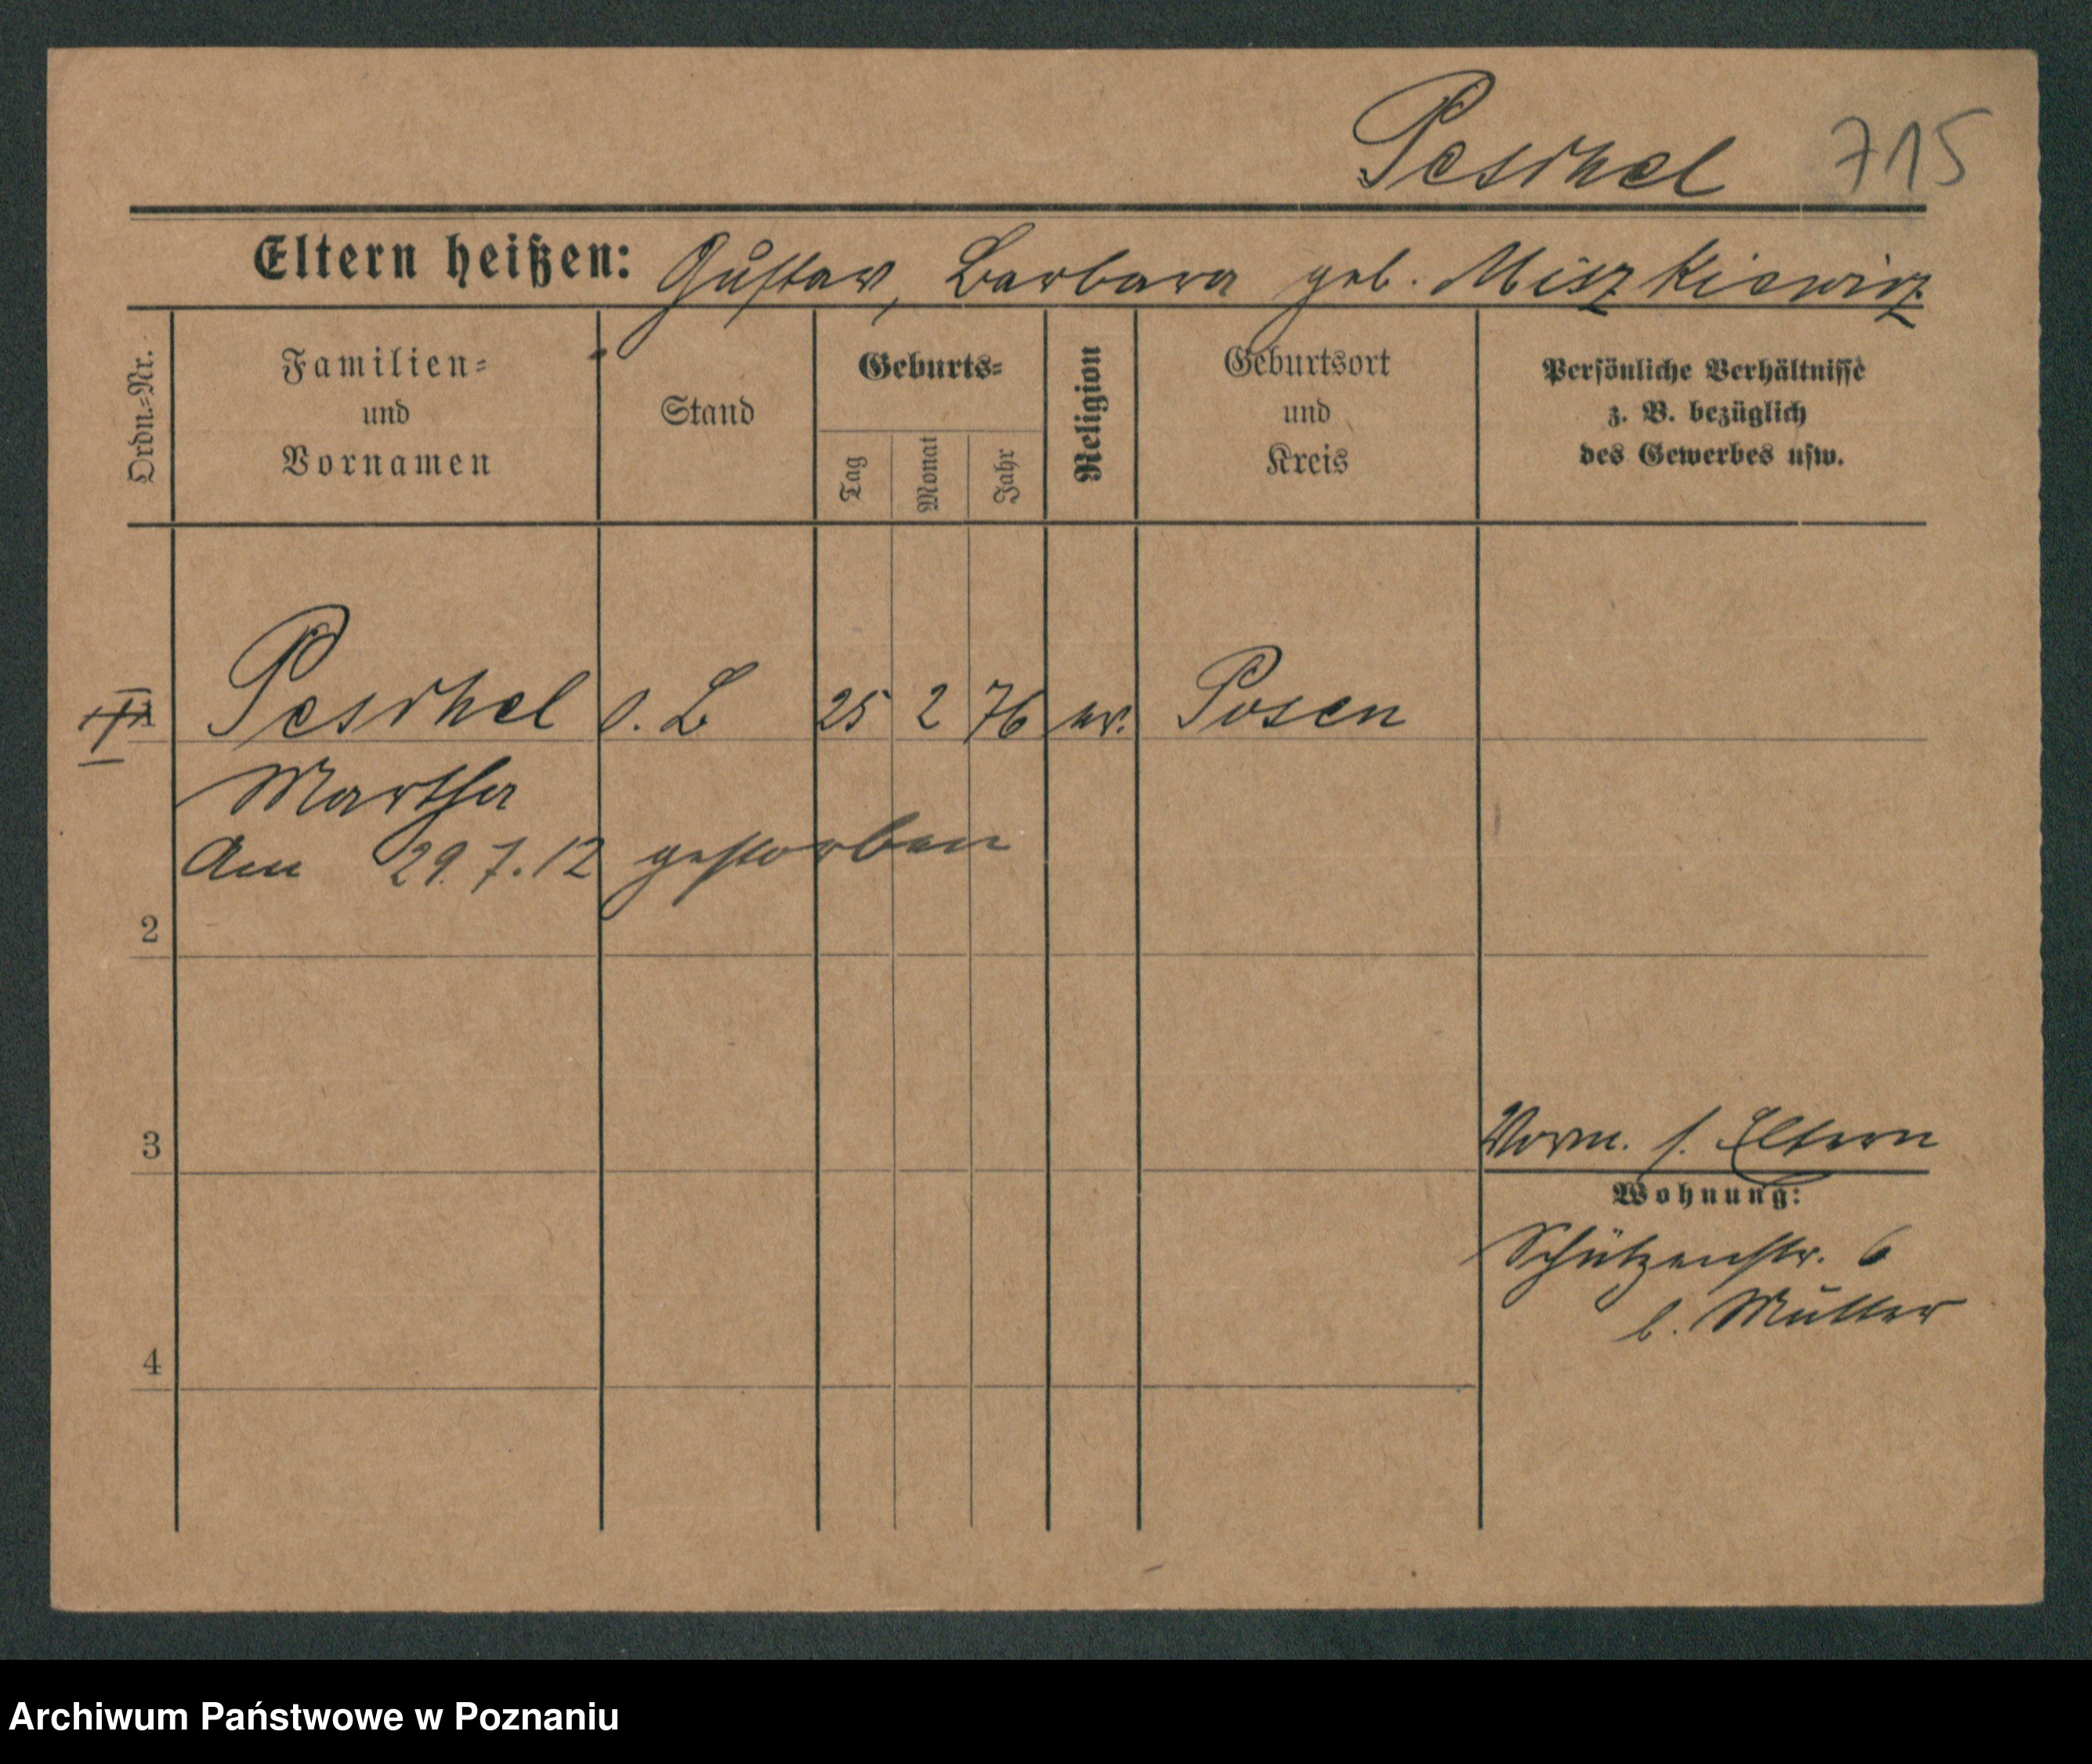 Peschel 715
Eltern heißen: Gustav, Barbara geb. Miszkiewicz
Ordn.-Nr.
Familien-
und
Vornamen
Stand
Geburts-
Tag
Monat
Jahr
Religion
Geburtsort
und
Kreis
Persönliche Verhältnisse
z. B. bezüglich
des Gewerbes usw.
Peschel o. B 25 2 76 ev. Posen
Martha
Am 29.7.12 gestorben
2
3
Vorm. s. Eltern
Wohnung:
Schützenstr. 6
b. Mutter
4
Archiwum Państwowe w Poznaniu